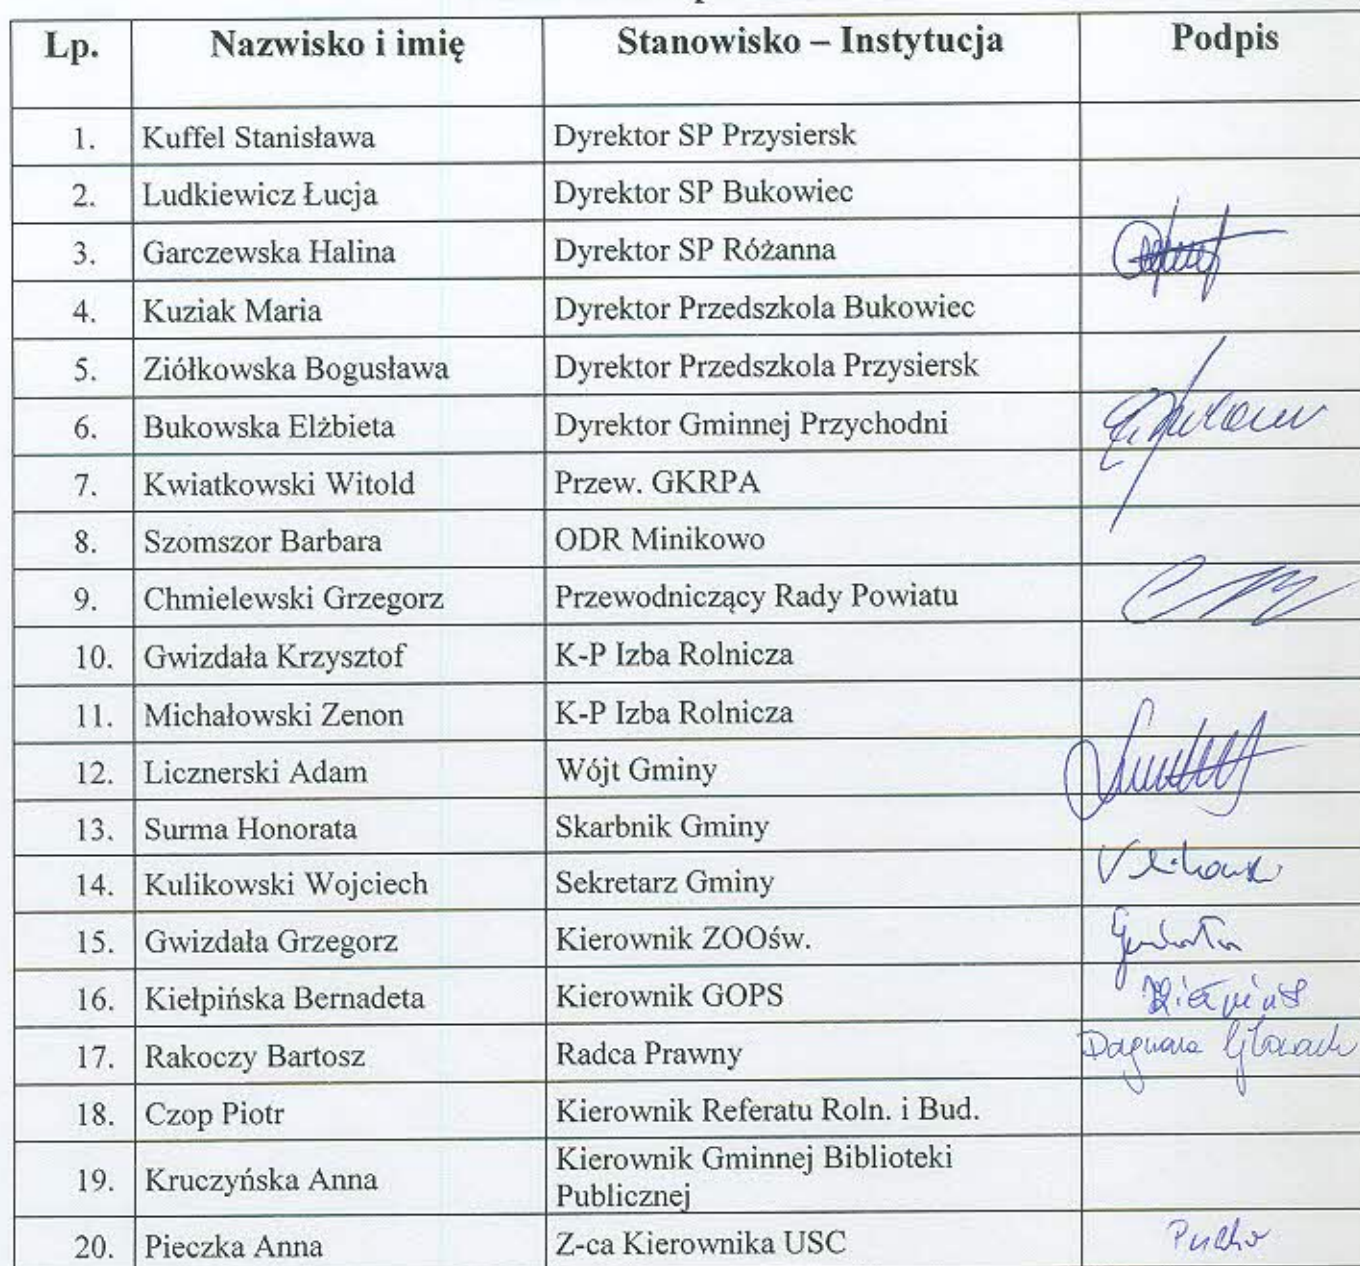 Lp. Nazwisko i imię Stanowisko – Instytucja Podpis
1. Kuffel Stanisława Dyrektor SP Przysiersk
2. Ludkiewicz Łucja Dyrektor SP Bukowiec
3. Garczewska Halina Dyrektor SP Różanna
4. Kuziak Maria Dyrektor Przedszkola Bukowiec
5. Ziółkowska Bogusława Dyrektor Przedszkola Przysiersk
6. Bukowska Elżbieta Dyrektor Gminnej Przychodni
7. Kwiatkowski Witold Przew. GKRPA
8. Szomszor Barbara ODR Minikowo
9. Chmielewski Grzegorz Przewodniczący Rady Powiatu
10. Gwizdała Krzysztof K-P Izba Rolnicza
11. Michałowski Zenon K-P Izba Rolnicza
12. Licznerski Adam Wójt Gminy
13. Surma Honorata Skarbnik Gminy
14. Kulikowski Wojciech Sekretarz Gminy
15. Gwizdała Grzegorz Kierownik ZOOśw.
16. Kiełpińska Bernadeta Kierownik GOPS
17. Rakoczy Bartosz Radca Prawny Dagmara
18. Czop Piotr Kierownik Referatu Roln. i Bud.
19. Kruczyńska Anna Kierownik Gminnej Biblioteki
Publicznej
20. Pieczka Anna Z-ca Kierownika USC